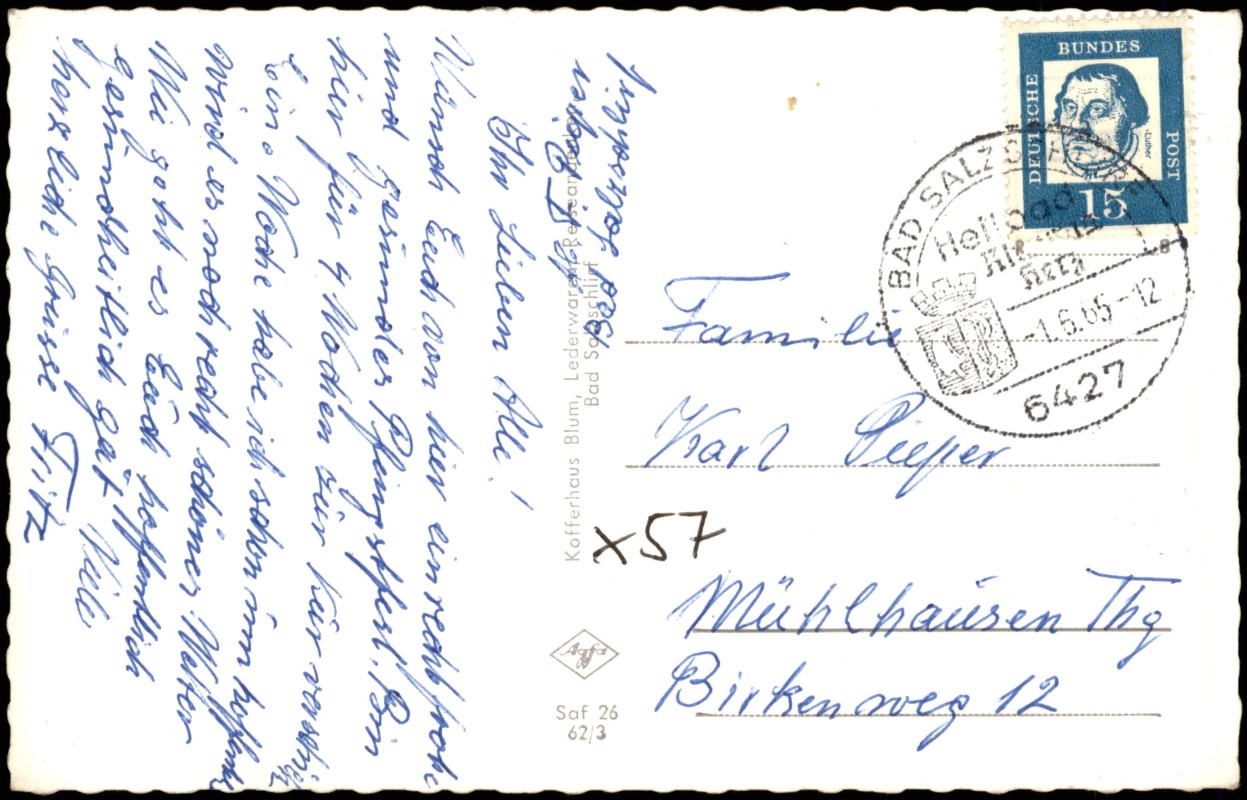 Salzschlirf
Ihr Lieben Alle!
Wünsch Euch von hier ein recht frohes
und gesundes Pfingstfest. Bin
hier für 4 Wochen zur Kur verschickt
Eine Woche habe ich schon um hoffentlich
wird es noch recht schönes Wetter
Mir geht es Euch hoffentlich
gesundheitlich gut. Viele
herzliche Grüsse Fritz
Kofferhaus Blum, Lederwaren-Reiseandenken
Bad Salzschlirf
Agfa
Saf 26
62/3
DEUTSCHE
BUNDES
POST
Luther
15
BAD SALZSCHLIRF
Heilbad
-1.6.65-12
6427
Familie
Karl Pieper
x57
Mühlhausen Thg
Birkenweg 12